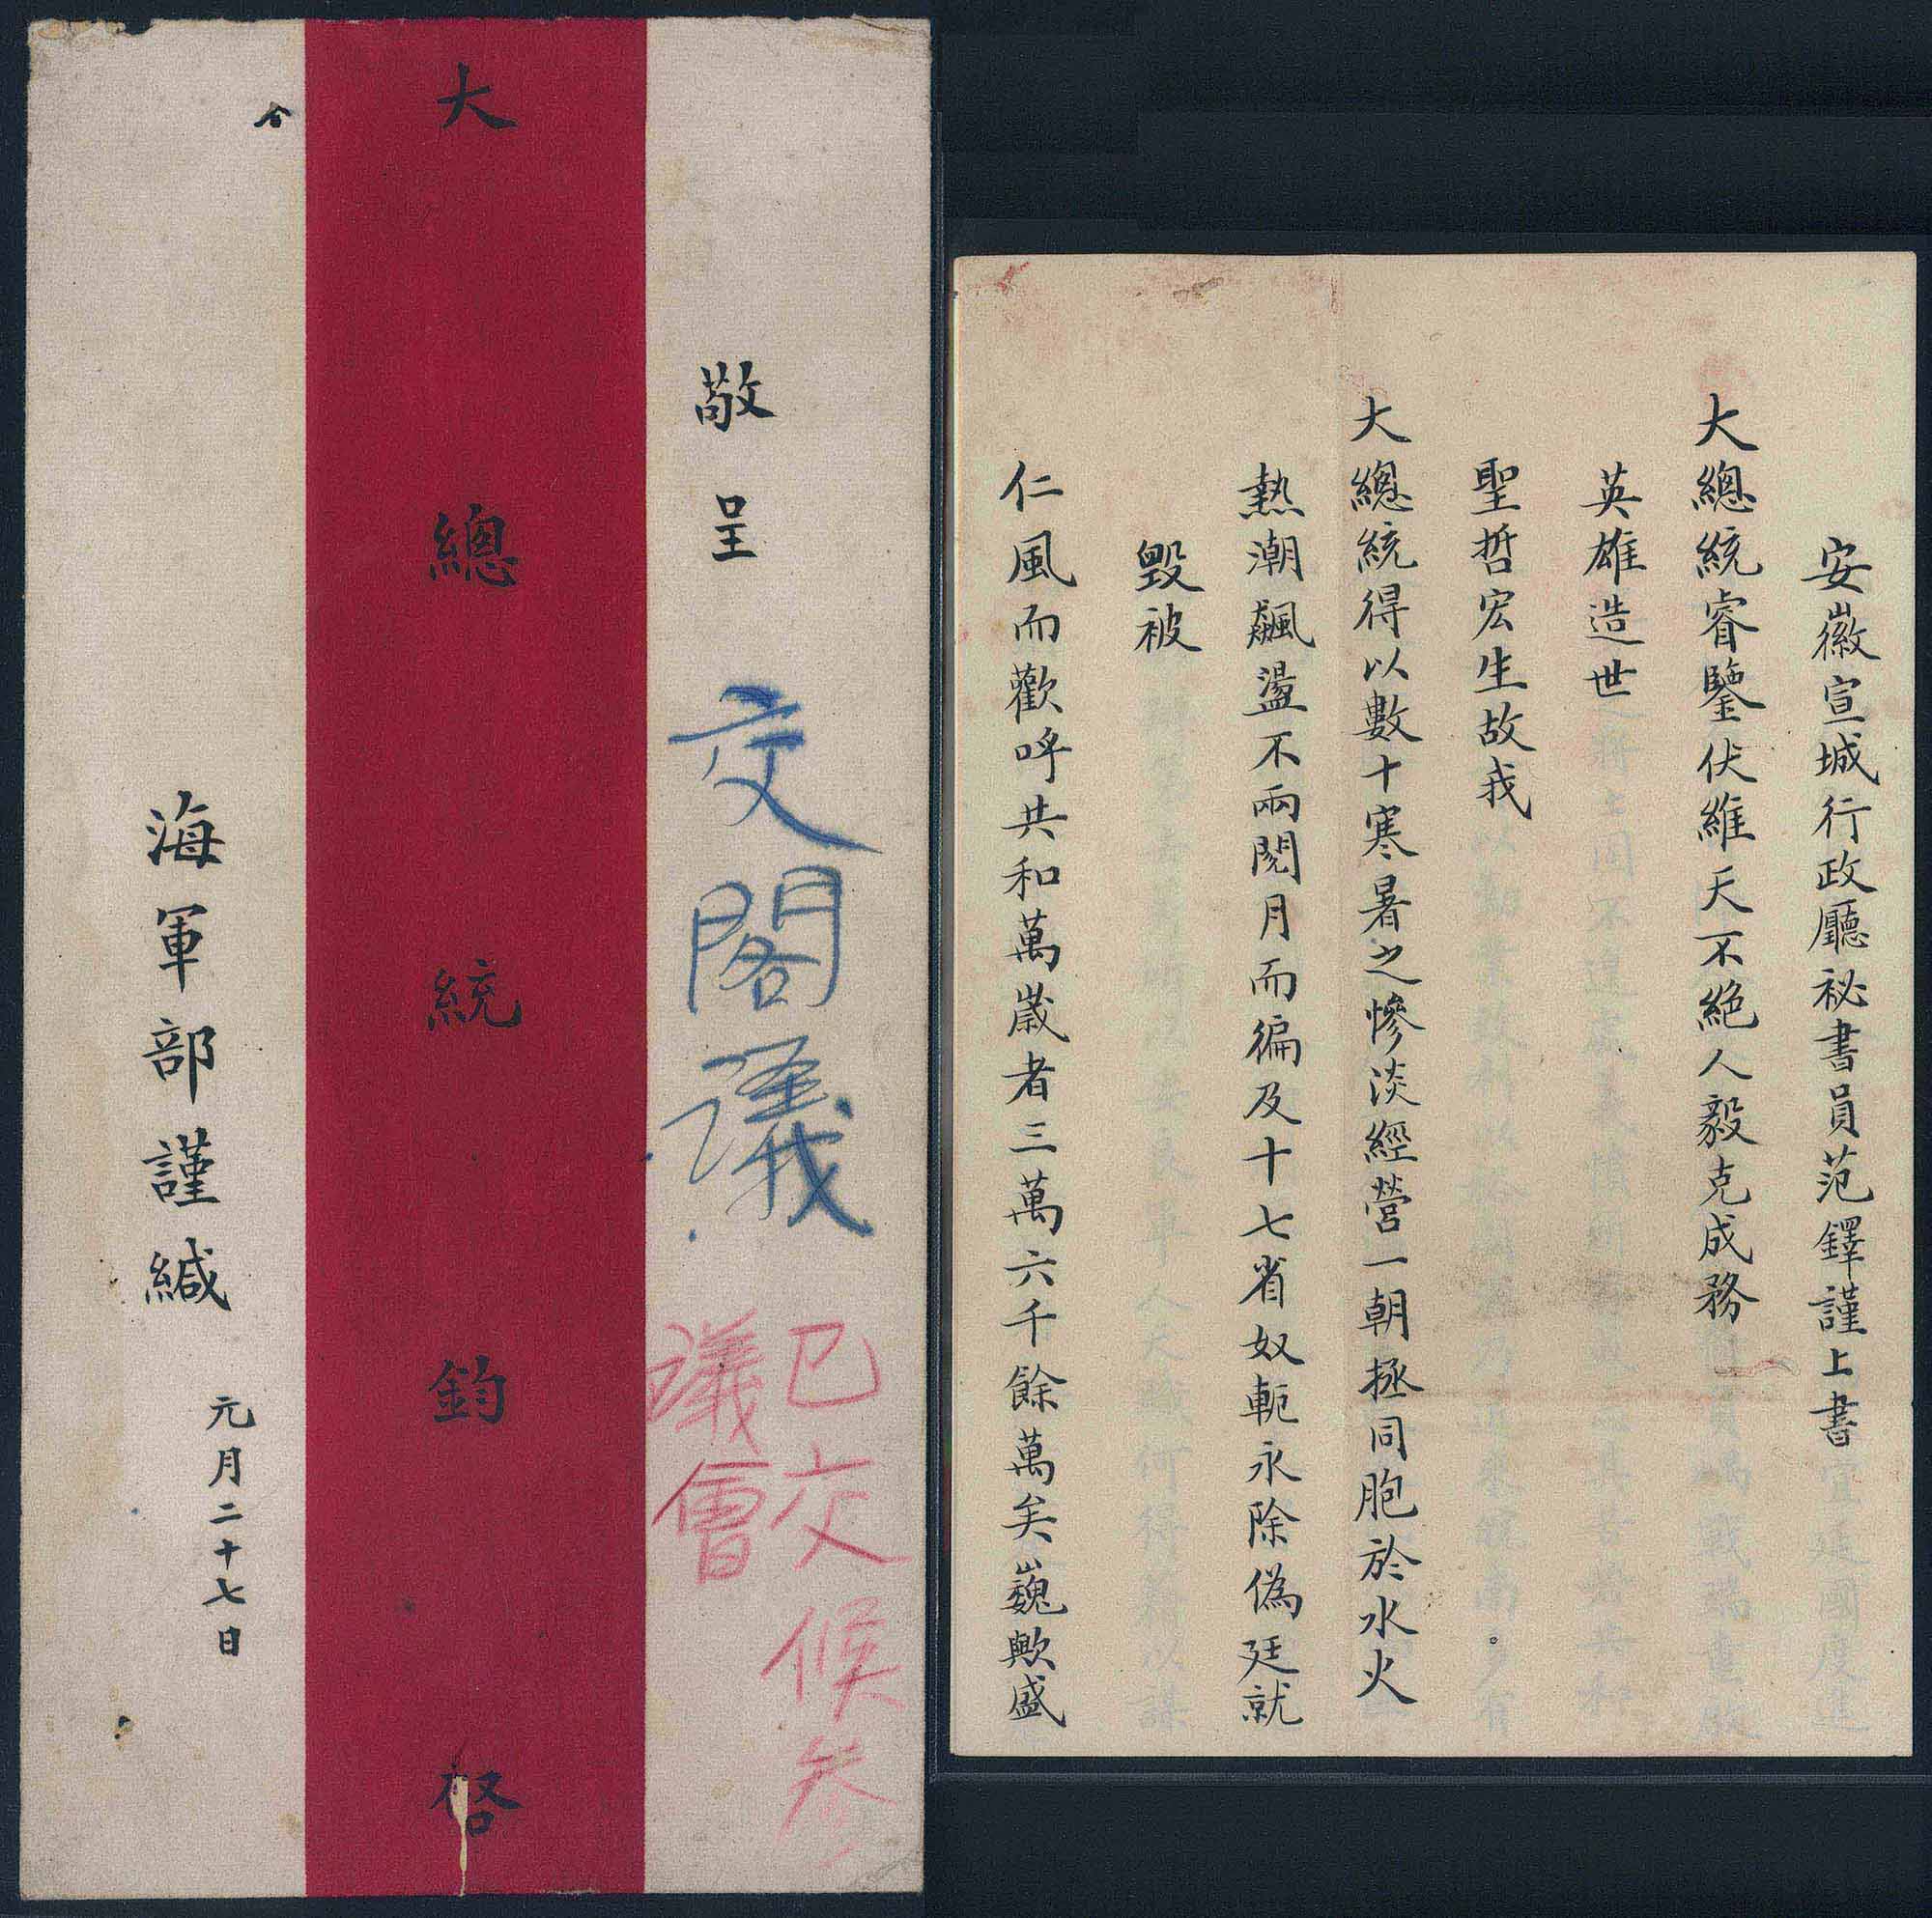 敬呈
交閣議
已交候參
議會
大總統鈞啓
海軍部謹緘
元月二十七日
安徽宣城行政廳祕書員范鐸謹上書
大總統睿鑒伏維天不絕人毅克成務
英雄造世
聖哲宏生故我
大總統得以數十寒暑之慘淡經營一朝拯同胞於水火
熱潮飆盪不兩閱月而徧及十七省奴軛永除偽廷就
毀被
仁風而歡呼共和萬歲者三萬六千餘萬矣巍歟盛